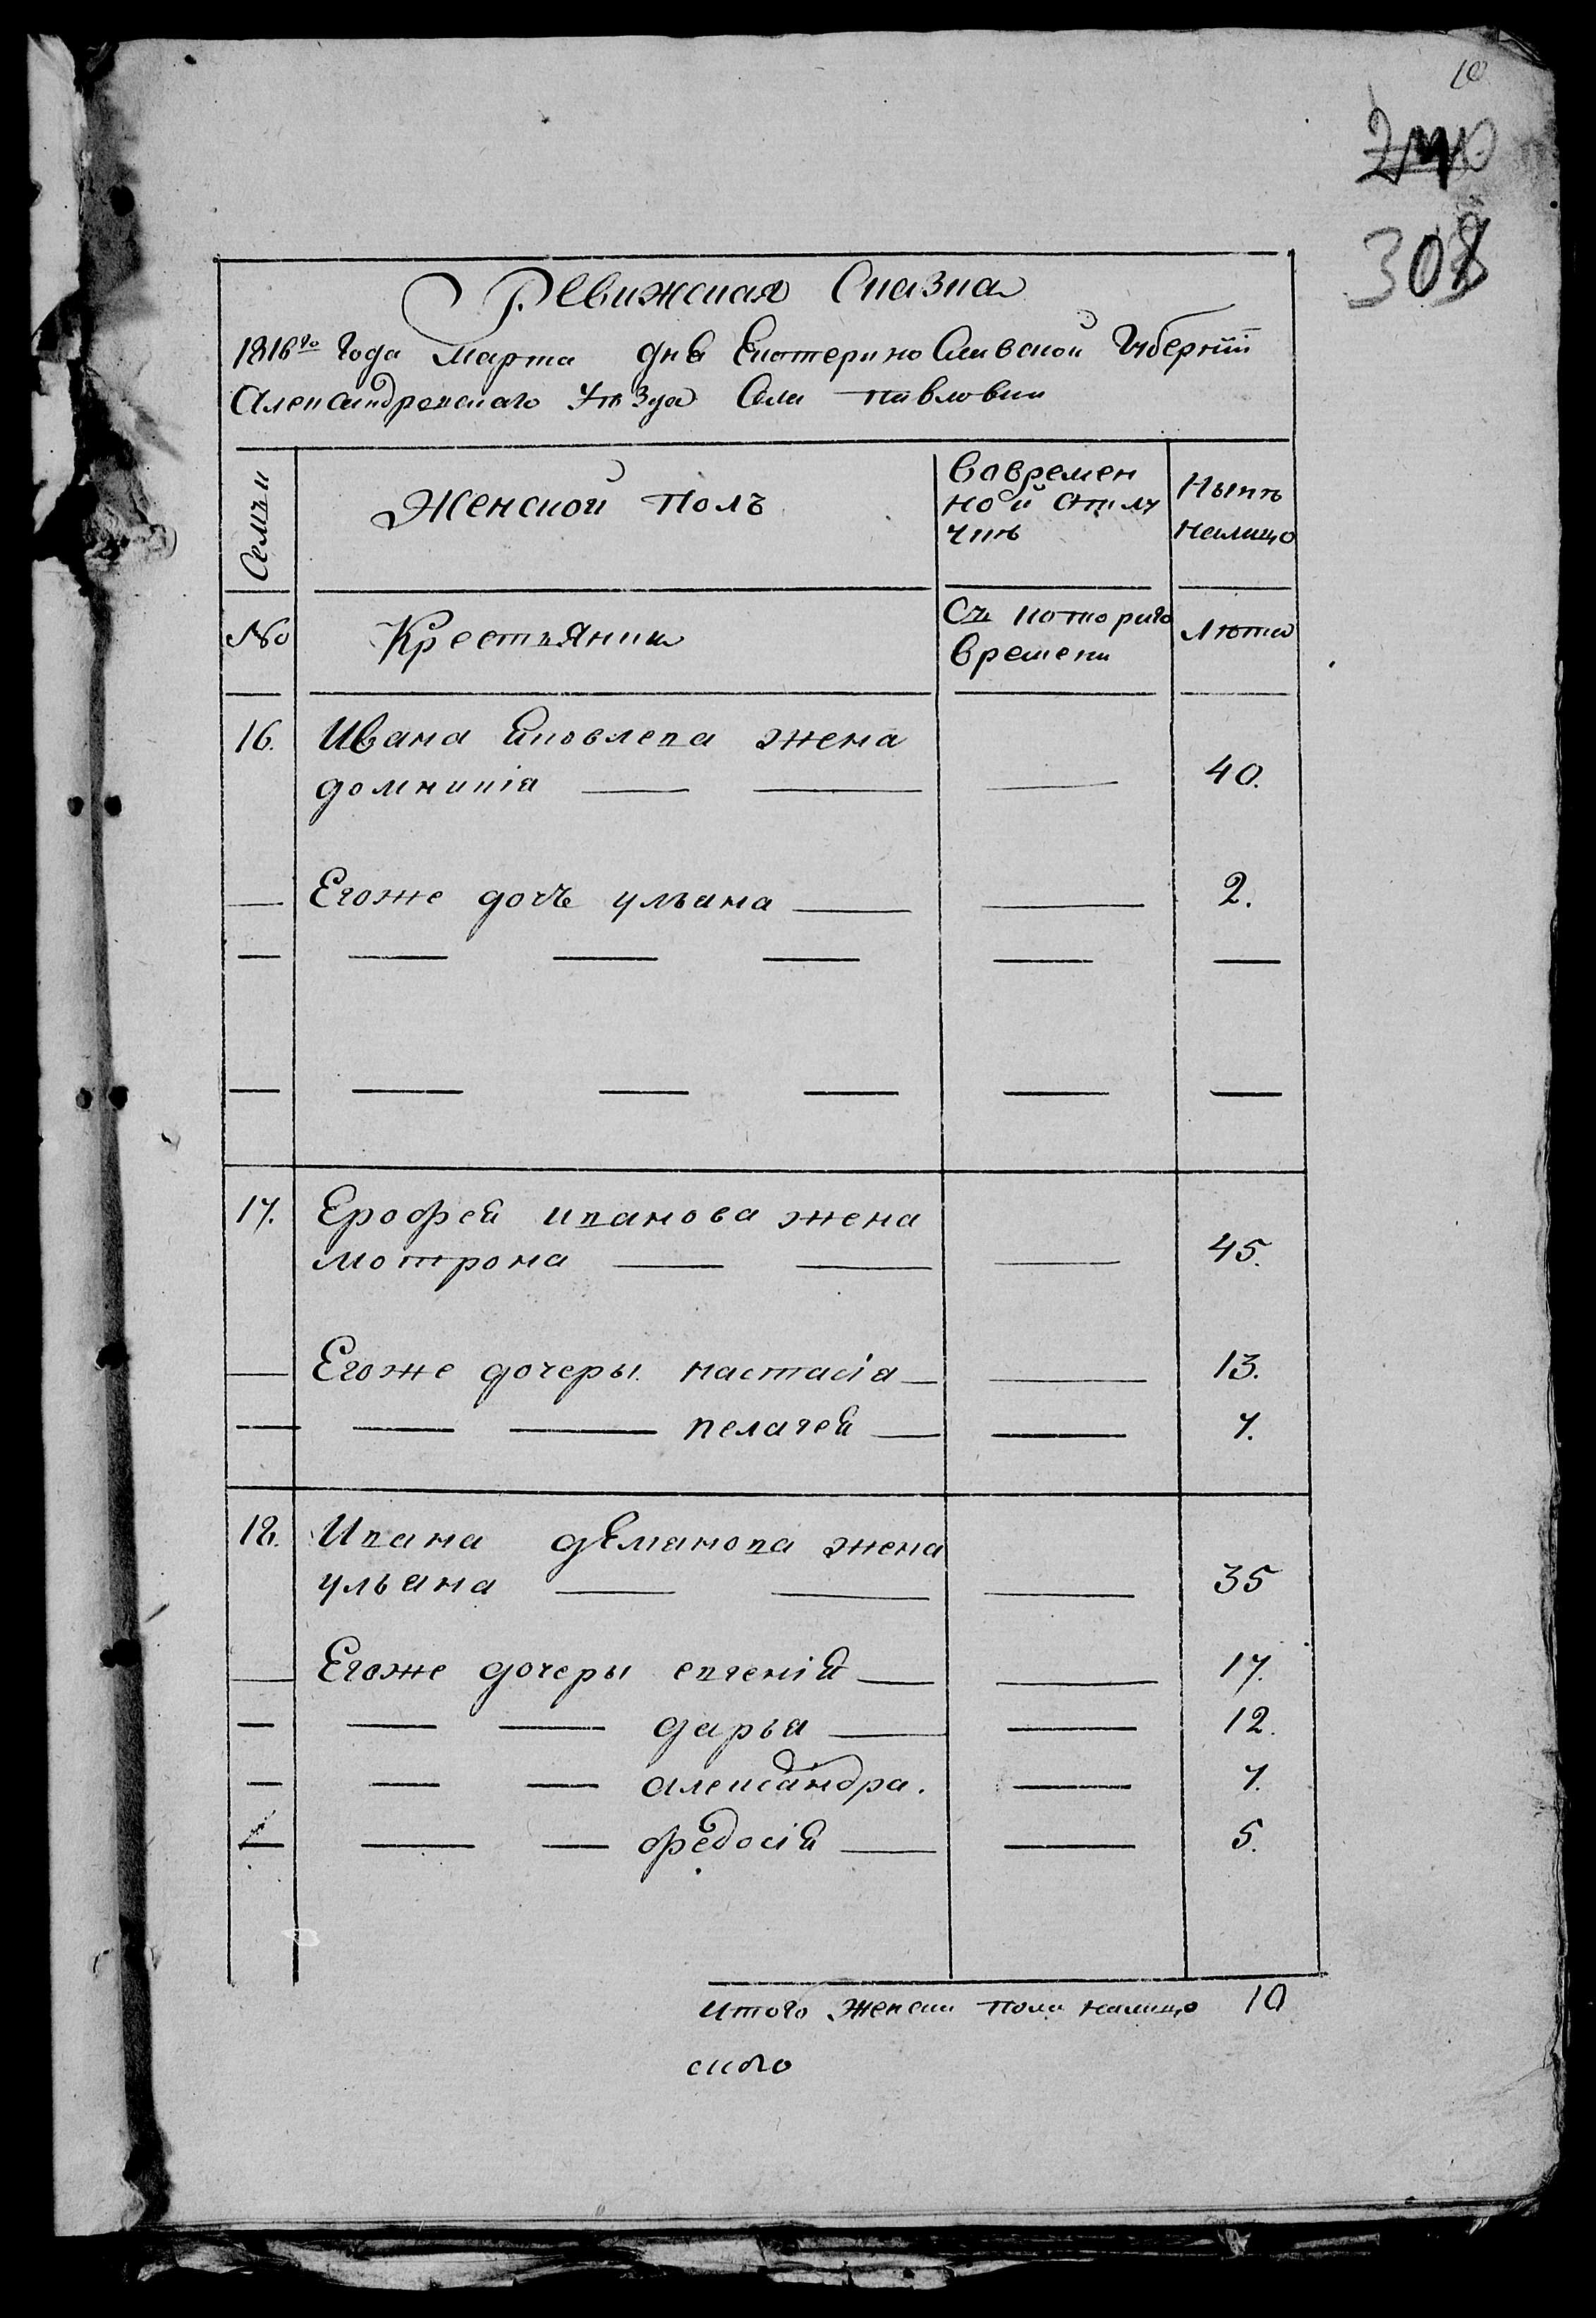 10
240
308
Ревижская Сказка
1816го Года Марта дня Екатерино Славской Губернии
Александревскаго Уѣзда Села Павловки
Семьи
Женской Полъ
Вовремен
ной отлу
чкѣ
Нынѣ
налицо
No
Крестьянки
Съ котораго
времени
Лѣта
16. Ивана Яковлева жена
домникія 40.
Егоже дочь ульана 2.
17. Ерофей иванова жена
мотрона 45.
Егоже дочеры настасія 13.
пелагей 7.
18. Ивана дЕмянова жена
ульана 35
Егоже дочеры евгеній 17.
дарья 12.
александра. 7.
федосій 5.
Итого женска пола налицо 10